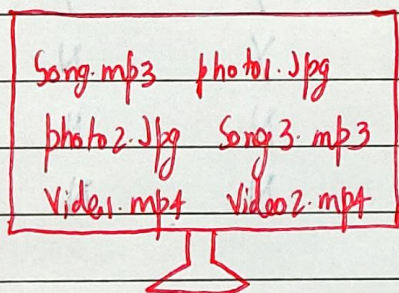 Song.mp3 photo1.Jpg
photo2.Jpg Song3.mp3
Vide1.mp4 Video2.mp4